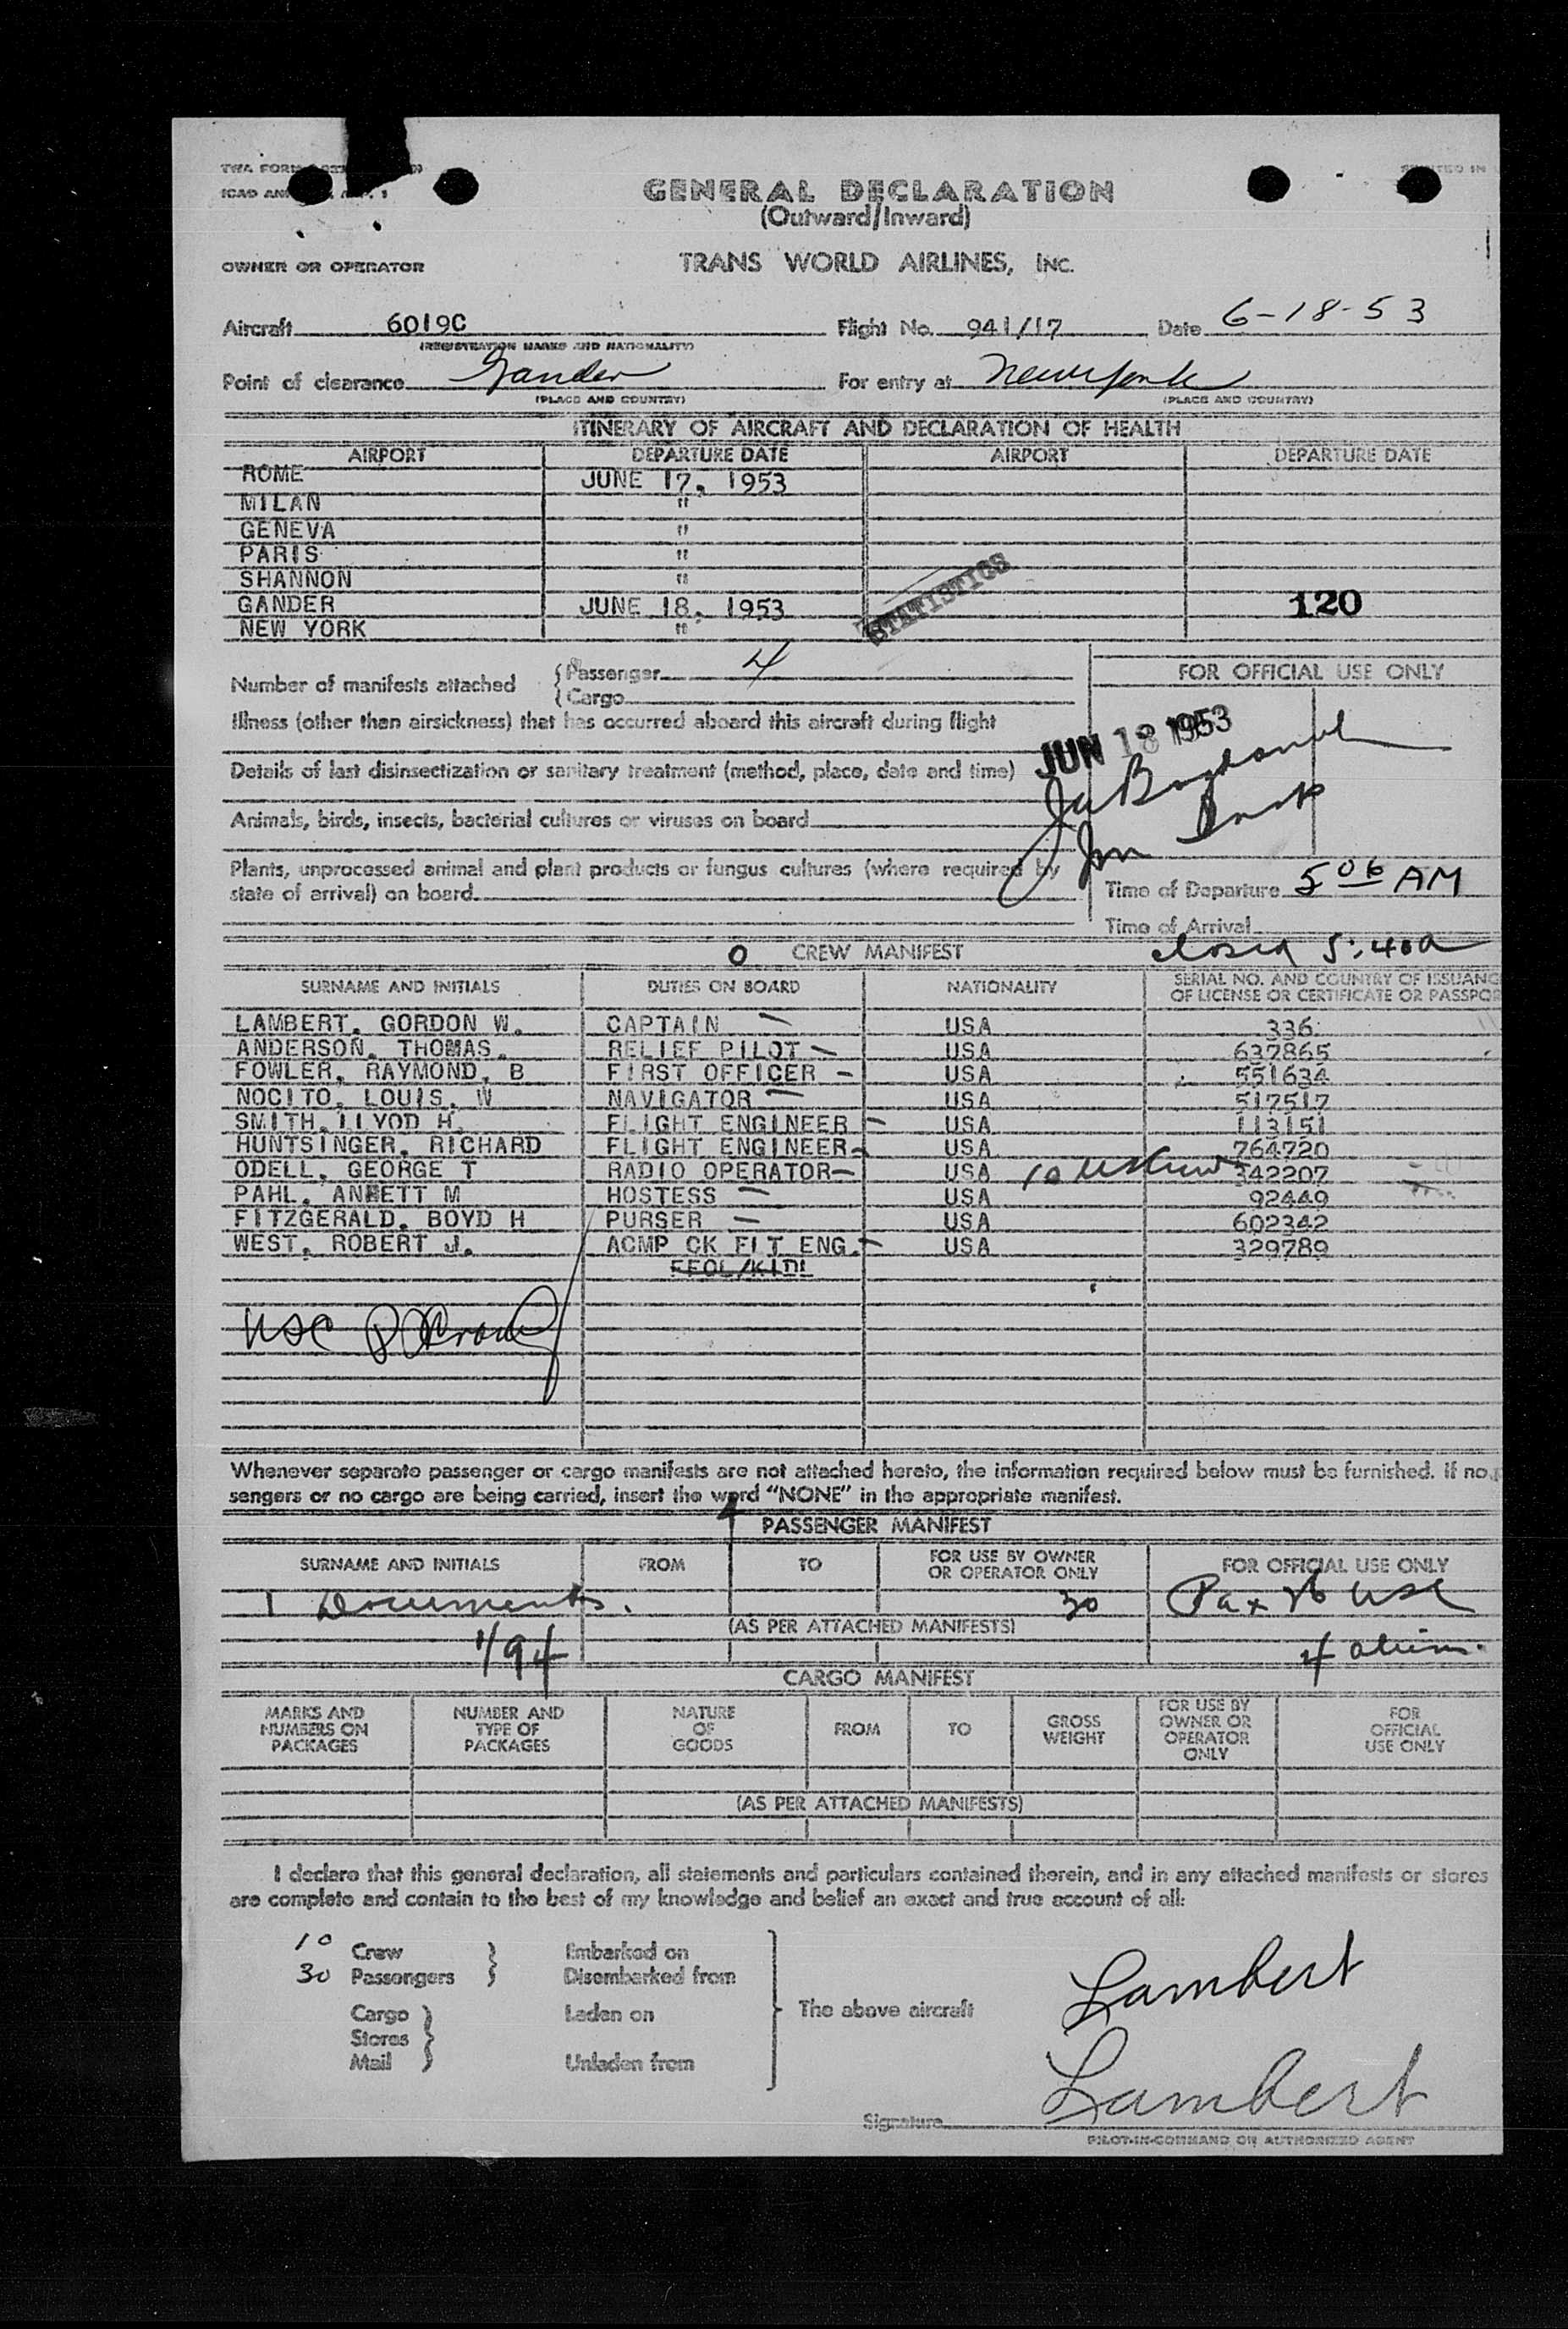 TWA FORM
ICAO
PRINTED IN
GENERAL DECLARATION
(Outward/Inward)
OWNER OR OPERATOR TRANS WORLD AIRLINES, INC.
Aircraft 6019C Flight No. 941/17 Date 6-18-53
(REGISTRATION MARKS AND NATIONALITY)
Point of clearance Gander For entry at New York
(PLACE AND COUNTRY) (PLACE AND COUNTRY)
ITINERARY OF AIRCRAFT AND DECLARATION OF HEALTH
AIRPORT DEPARTURE DATE AIRPORT DEPARTURE DATE
ROME JUNE 17, 1953
MILAN "
GENEVA "
PARIS "
SHANNON "
STATISTICS
GANDER JUNE 18, 1953 120
NEW YORK "
Number of manifests attached { Passenger 4
{ Cargo
FOR OFFICIAL USE ONLY
Illness (other than airsickness) that has occurred aboard this aircraft during flight
JUN 18 1953
Details of last disinsectization or sanitary treatment (method, place, date and time)
Animals, birds, insects, bacterial cultures or viruses on board
Plants, unprocessed animal and plant products or fungus cultures (where required by
state of arrival) on board
Time of Departure 5 06 AM
Time of Arrival
closed 5:40a
0 CREW MANIFEST
SURNAME AND INITIALS DUTIES ON BOARD NATIONALITY SERIAL NO. AND COUNTRY OF ISSUANC
OF LICENSE OR CERTIFICATE OR PASSPOR
LAMBERT, GORDON W. CAPTAIN — USA 336
ANDERSON, THOMAS. RELIEF PILOT — USA 637865
FOWLER, RAYMOND, B FIRST OFFICER — USA 551634
NOCITO, LOUIS, W NAVIGATOR — USA 517517
SMITH, LLYOD H. FLIGHT ENGINEER — USA 113151
HUNTSINGER, RICHARD FLIGHT ENGINEER — USA 764720
ODELL, GEORGE T RADIO OPERATOR — USA 10 342207
PAHL, ANNETT M HOSTESS — USA 92449
FITZGERALD, BOYD H PURSER — USA 602342
WEST, ROBERT J. ACMP CK FLT ENG. — USA 329789
FFOL/KIDL
USC
Whenever separate passenger or cargo manifests are not attached hereto, the information required below must be furnished. If no
sengers or no cargo are being carried, insert the word "NONE" in the appropriate manifest.
4
PASSENGER MANIFEST
SURNAME AND INITIALS FROM TO FOR USE BY OWNER
OR OPERATOR ONLY FOR OFFICIAL USE ONLY
1 Documents. 30 Pax 26 USC
(AS PER ATTACHED MANIFESTS)
1/94 4 aliens.
CARGO MANIFEST
MARKS AND
NUMBERS ON
PACKAGES
NUMBER AND
TYPE OF
PACKAGES
NATURE
OF
GOODS
FROM TO
GROSS
WEIGHT
FOR USE BY
OWNER OR
OPERATOR
ONLY
FOR
OFFICIAL
USE ONLY
(AS PER ATTACHED MANIFESTS)
I declare that this general declaration, all statements and particulars contained therein, and in any attached manifests or stores
are complete and contain to the best of my knowledge and belief an exact and true account of all:
10 Crew } Embarked on
30 Passengers } Disembarked from
Cargo } Laden on The above aircraft Lambert
Stores
Mail } Unladen from
Signature Lambert
PILOT-IN-COMMAND OR AUTHORIZED AGENT